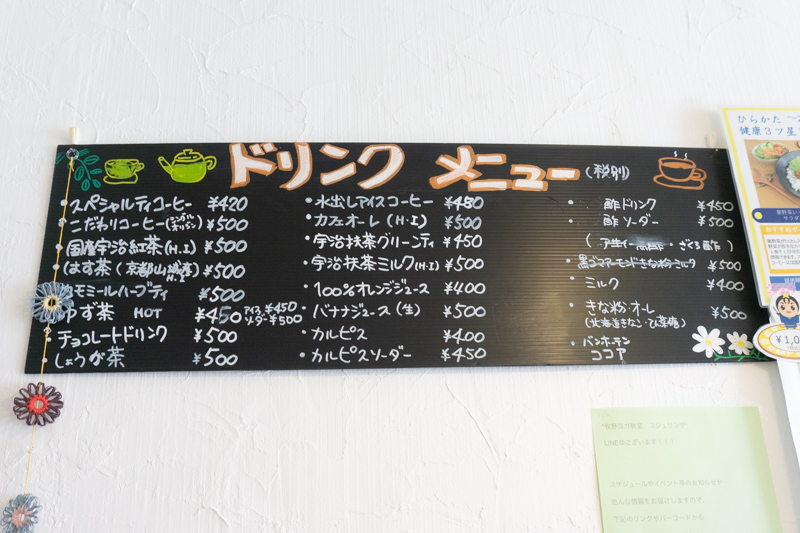 ドリンク メニュー (税別)
スペシャルティコーヒー ¥420
こだわりコーヒー ¥500
国産宇治紅茶(H.I) ¥500
はす茶(京都山城産) H.I ¥500
カモミールハーブティ ¥500
ゆず茶 HOT ¥450 アイス ¥450
ソーダー ¥500
チョコレートドリンク ¥500
しょうが茶 ¥500
・水出しアイスコーヒー ¥480
・カフェオーレ(H.I) ¥500
・宇治抹茶グリーンティ ¥450
・宇治抹茶ミルク(H.I) ¥500
・100%オレンジジュース ¥400
・バナナジュース(生) ¥500
・カルピス ¥400
・カルピスソーダー ¥450
・酢ドリンク ¥450
・酢ソーダー ¥500
ざくろ酢)
・黒ゴマアーモンドきな粉ミルク ¥500
・ミルク ¥400
・きな粉・オレ ¥500
(北海道きなこ・
・バンホーテン
ココア
ひらかた
健康3ツ星
サラダ
おすすめポ
¥1,0
LINEもございます!!!
スケジュールやイベント等のお知らせや
色んな情報をお届けしますので、
下記のリンクやバーコードから